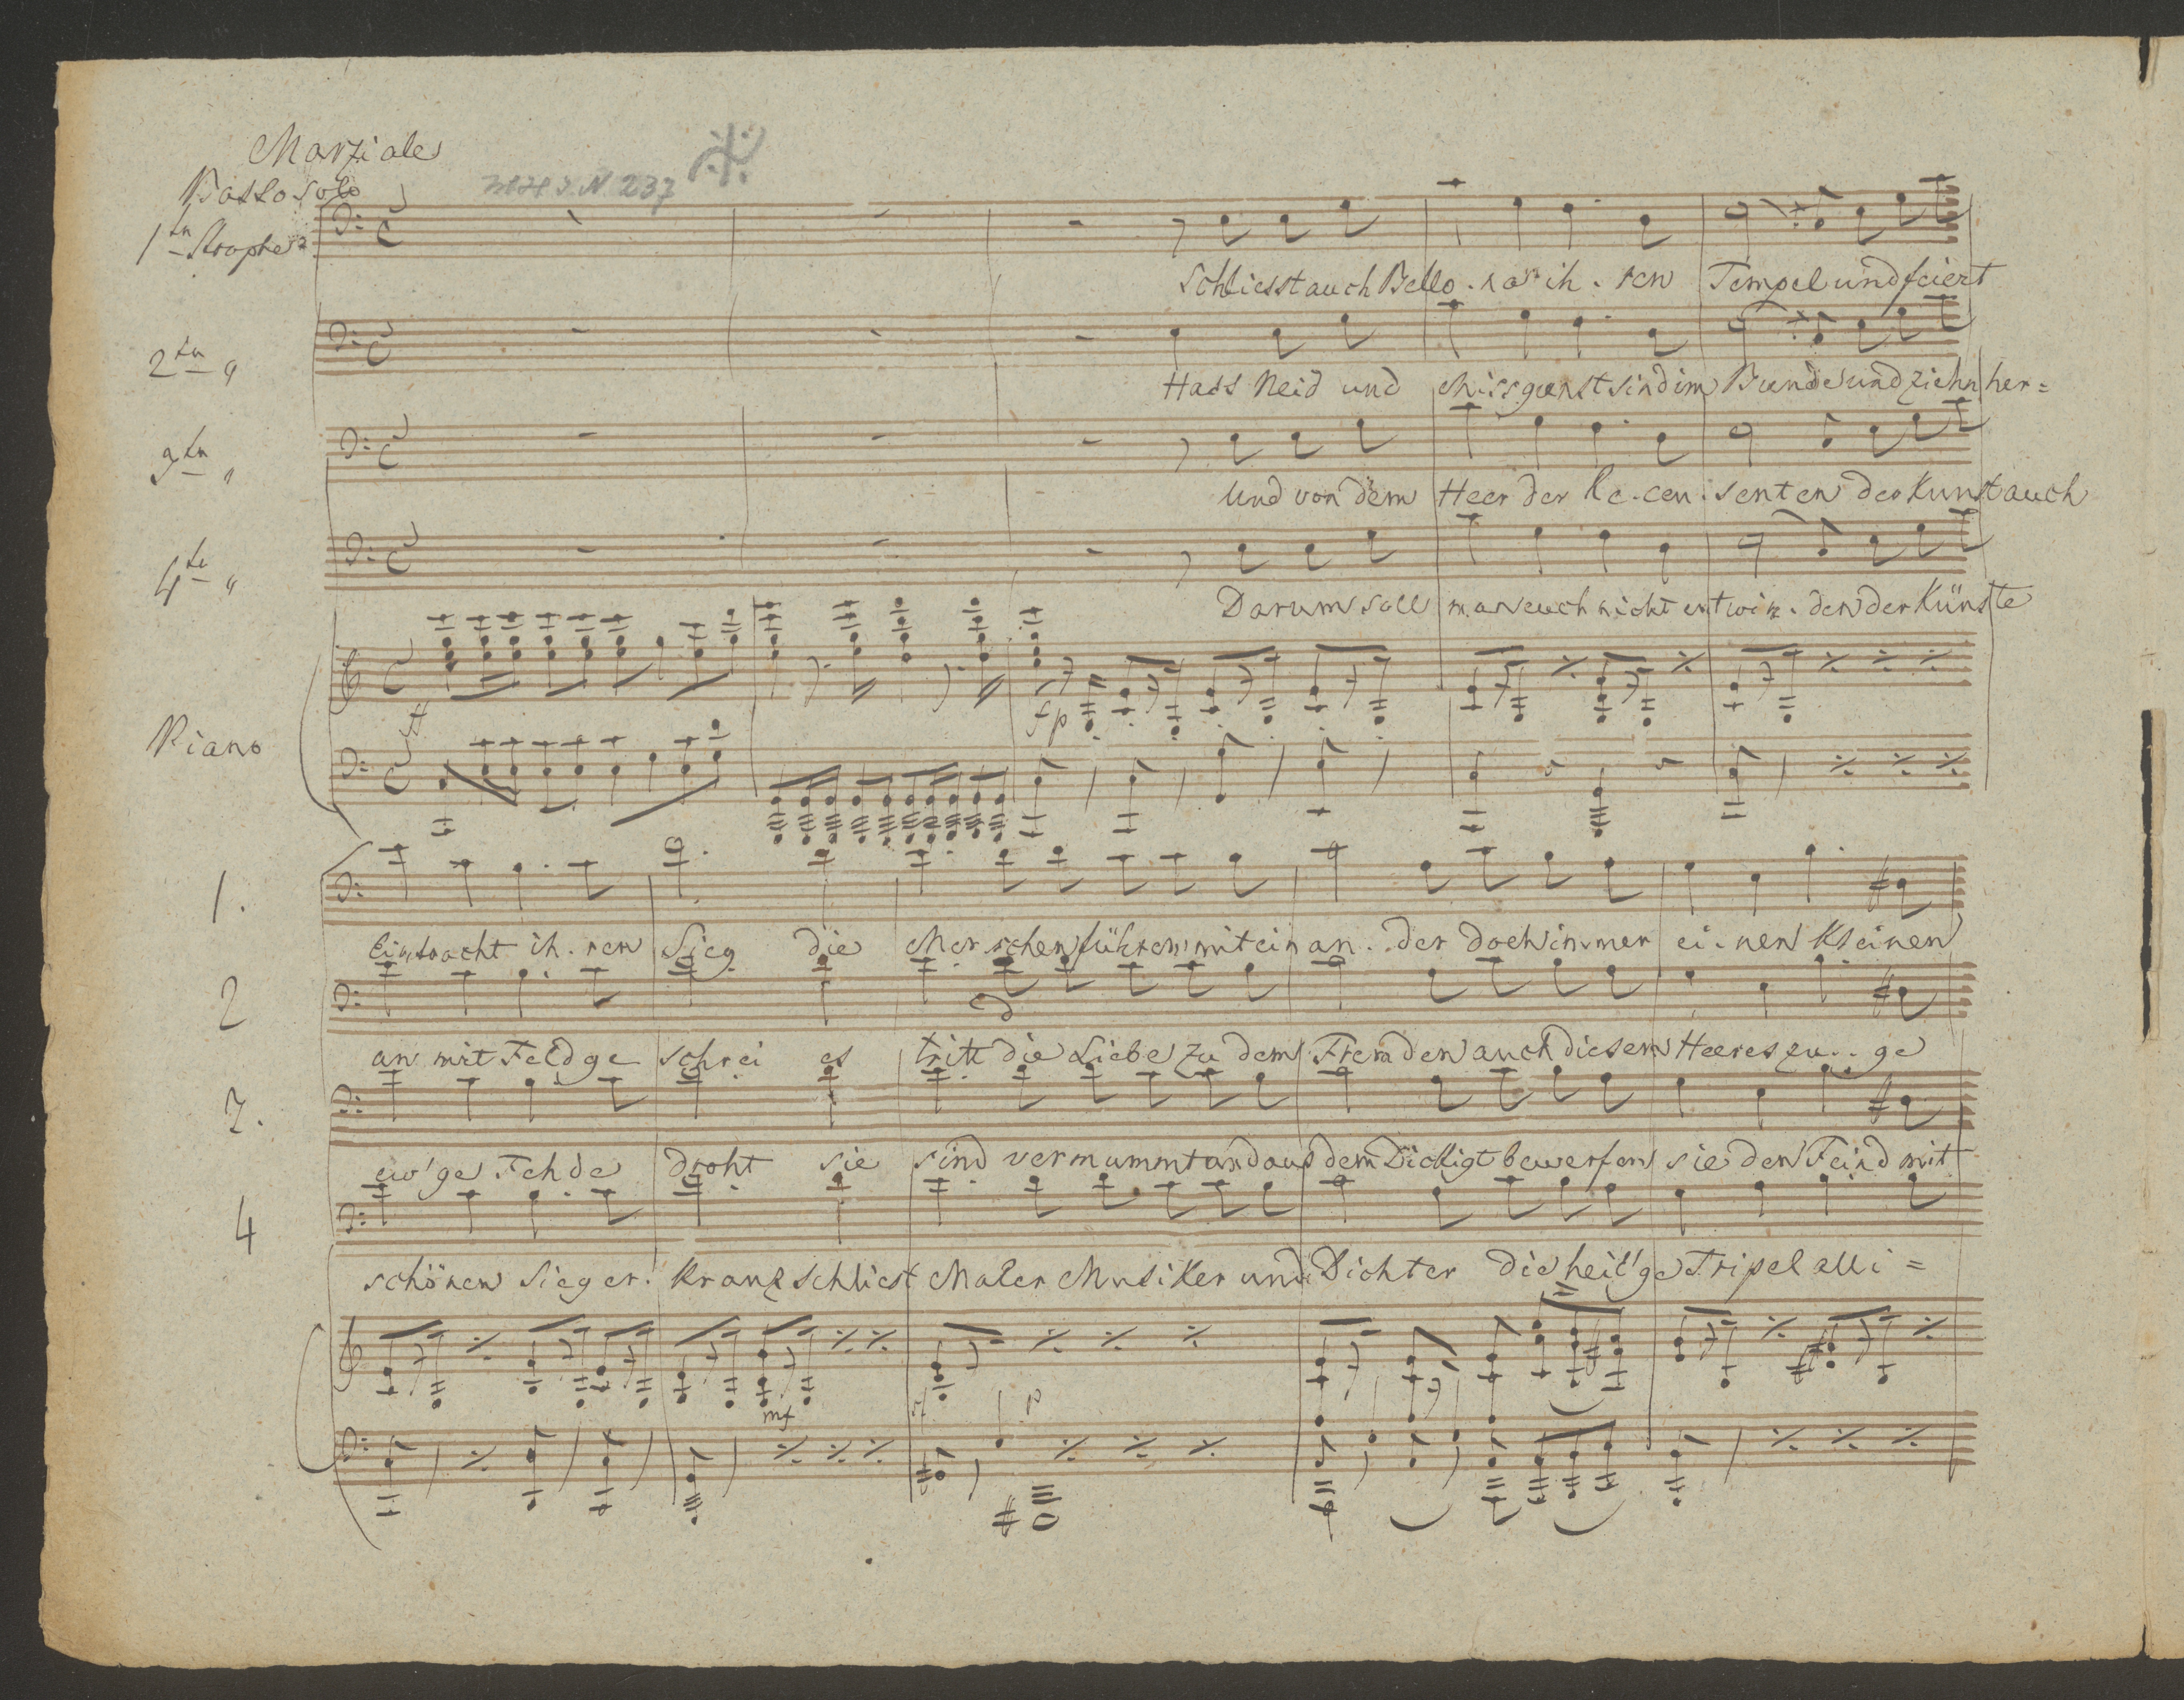 Marziale
Basso Solo
1tn Strophe
Schliesst auch Bello. na ih. ren Tempel und feiert
2tn "
Hass Neid und Missgunst sind im Bunde und ziehn her=
3tn "
Und von dem Heer der Re. cen. senten der Kunst auch
4te "
Darum soll man euch nicht entwin. den der Künste
ff
fp
Piano
1.
Eintracht ih. ren Sieg die Menschen führen mitein an. der doch immer ei. nen Kleinen
2
an mit Feldge schrei es tritt die Liebe zu dem Fremden auch diesem Heeres zu.. ge
3.
ew'ge Fehde droht sie sind vermummt und aus dem Dickigt bewerfen sie den Feind mit
4
schönen Sieger. Kranz schliest Maler Musiker und Dichter die heil'ge Tripel alli=
mf
p